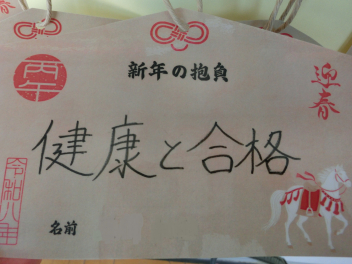 春
丙午
新年の抱負
迎春
健康と合格
令和八年
名前